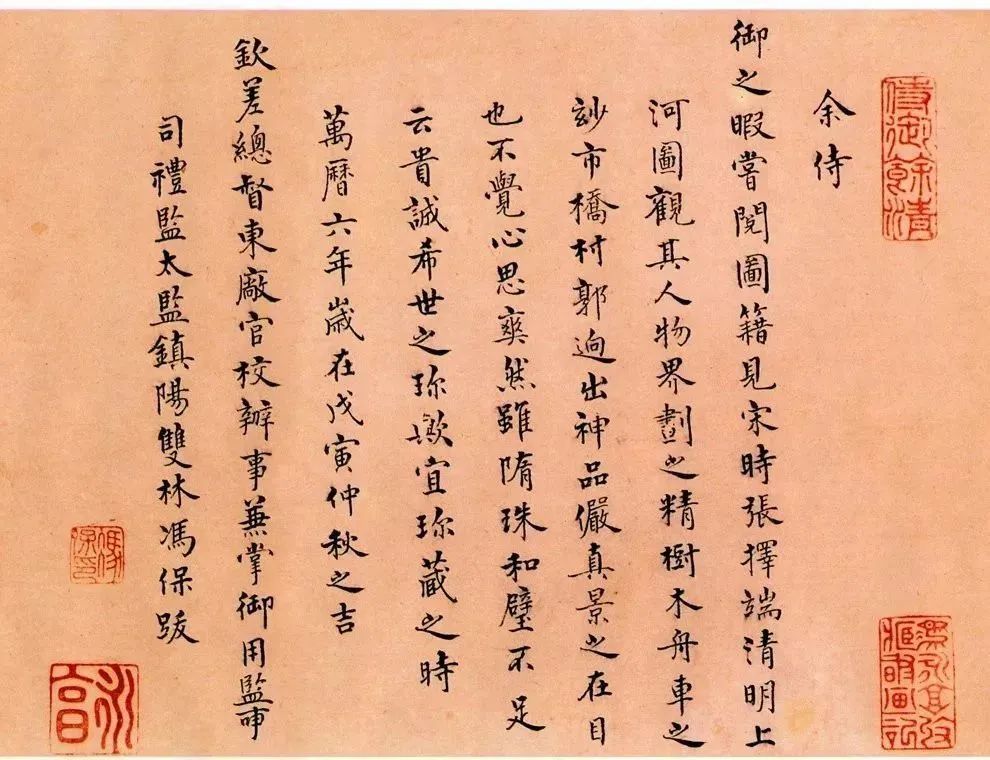 侍御餘清
余侍
御之暇嘗閱圖籍見宋時張擇端清明上
河圖觀其人物界劃之精樹木舟車之
玅市橋村郭逈出神品儼真景之在目
也不覺心思爽然雖隋珠和璧不足
云貴誠希世之珎歟宜珎藏之時
萬曆六年歲在戊寅仲秋之吉
欽差總督東廠官校辦事兼掌御用監事
司禮監太監鎮陽雙林馮保跋
馮保印